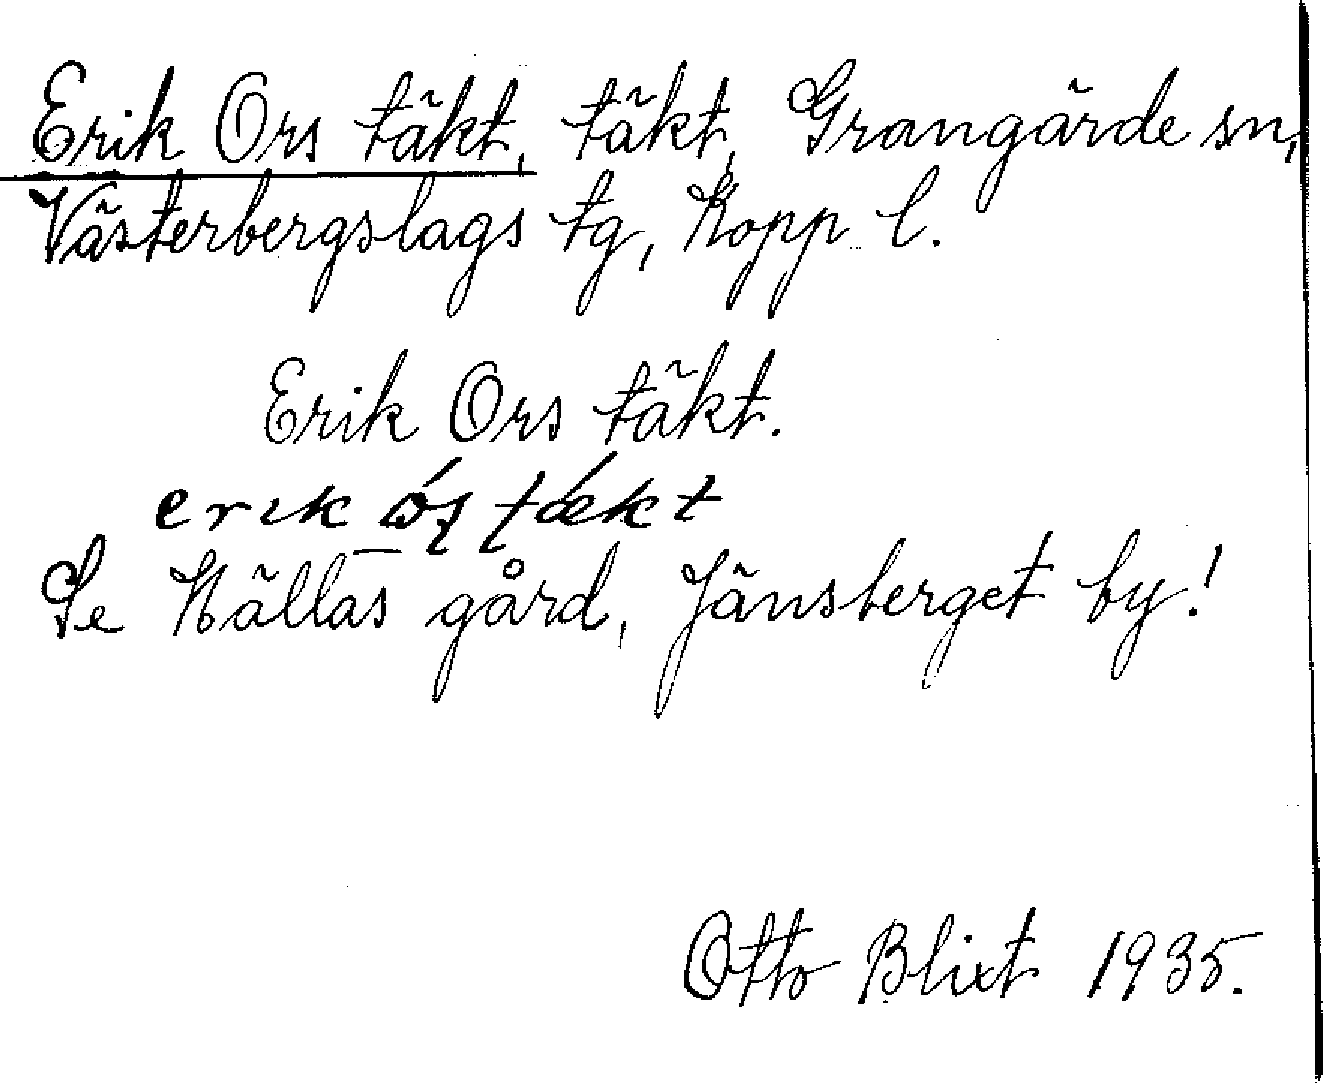 Erik Ors täkt, täkt, Grangärde sn,
Västerbergslags tg, Kopp. l.
Erik Ors täkt.
erik tækt
Se Hällas gård, Jänsberget by!
Otto Blixt 1935.